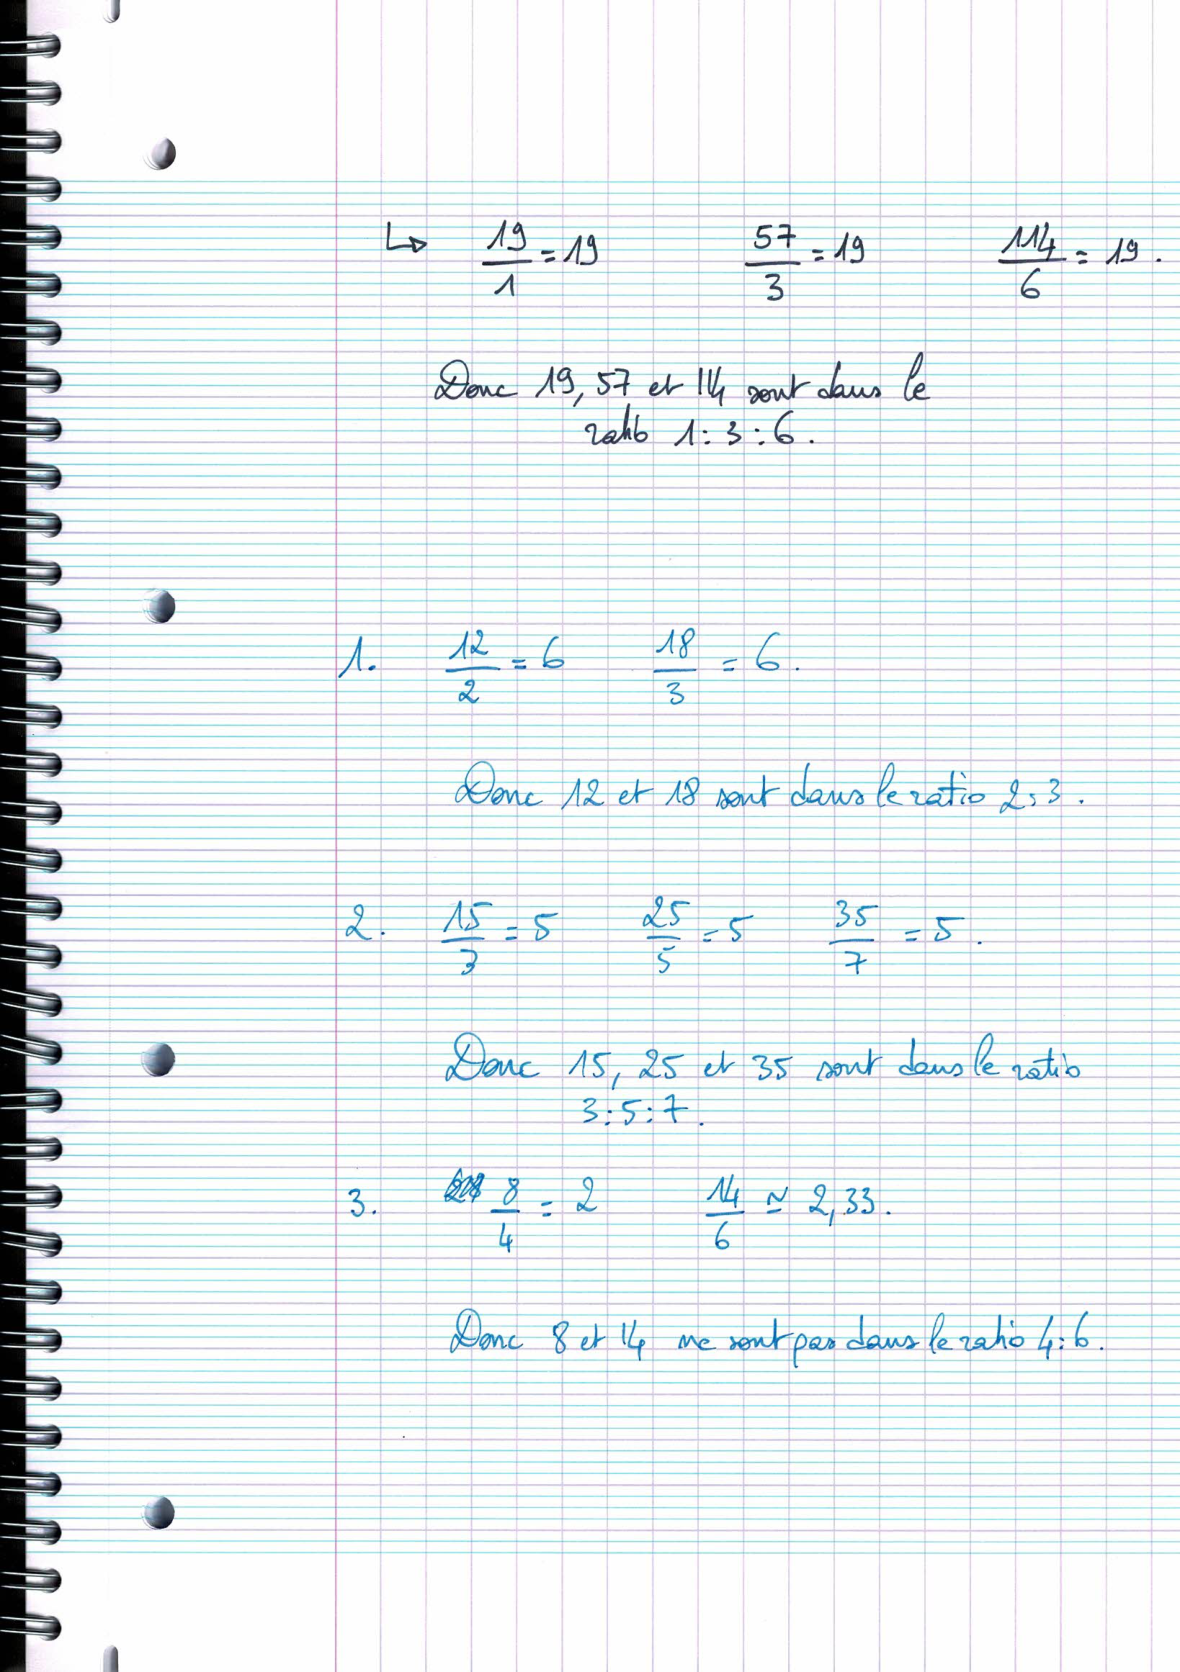 ↳ 19/1 = 19 57/3 = 19 114/6 = 19.
Donc 19, 57 et 114 sont dans le
ratio 1 : 3 : 6.
1. 12/2 = 6 18/3 = 6.
Donc 12 et 18 sont dans le ratio 2 : 3.
2. 15/3 = 5 25/5 = 5 35/7 = 5.
Donc 15, 25 et 35 sont dans le ratio
3 : 5 : 7.
3. 8/4 = 2 14/6 ≃ 2,33.
Donc 8 et 14 ne sont pas dans le ratio 4 : 6.